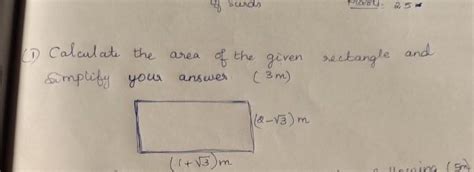 of Surds
Marks: 25
(1) Calculate the area of the given rectangle and
Simplify your answer (3m)
(2-√3) m
(1+√3) m
(5m